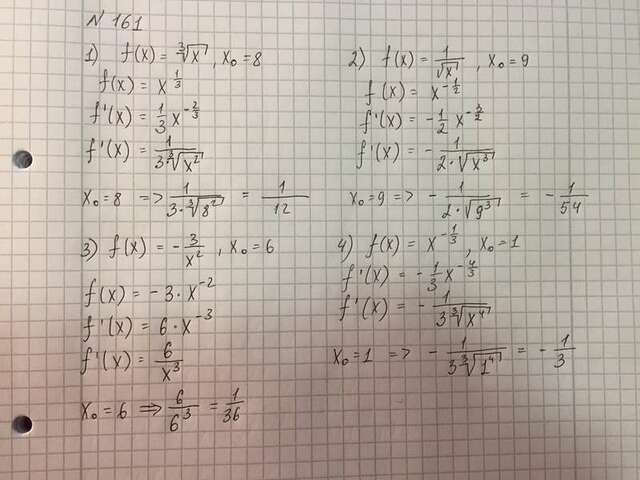 N 161
1) f(x) = ∛x, x₀ = 8
f(x) = x^(1/3)
f'(x) = 1/3 x^(-2/3)
f'(x) = 1/(3·∛(x²))
x₀ = 8 => 1/(3·∛(8²)) = 1/12
2) f(x) = 1/√x, x₀ = 9
f(x) = x^(-1/2)
f'(x) = -1/2 x^(-3/2)
f'(x) = -1/(2·√(x³))
x₀ = 9 => -1/(2·√(9³)) = -1/54
3) f(x) = -3/x², x₀ = 6
f(x) = -3·x^(-2)
f'(x) = 6·x^(-3)
f'(x) = 6/x³
x₀ = 6 => 6/6³ = 1/36
4) f(x) = x^(-1/3), x₀ = 1
f'(x) = -1/3 x^(-4/3)
f'(x) = -1/(3∛(x⁴))
x₀ = 1 => -1/(3∛(1⁴)) = -1/3